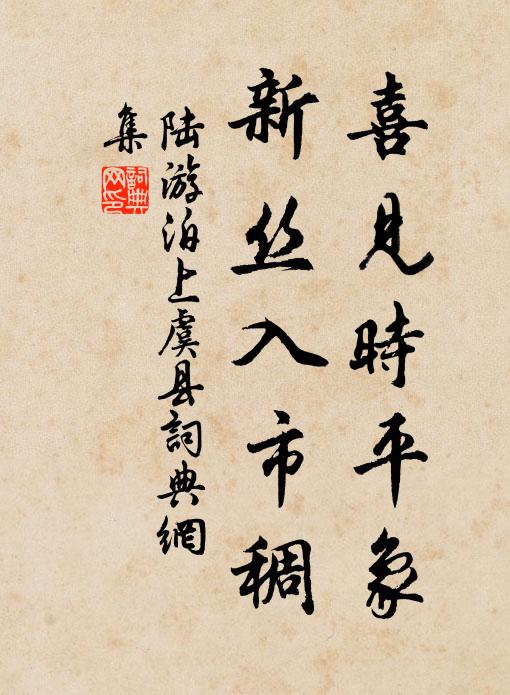 喜见時平象
新丝入市稠
陆游泊上虞县詞典網
集
詞典网印